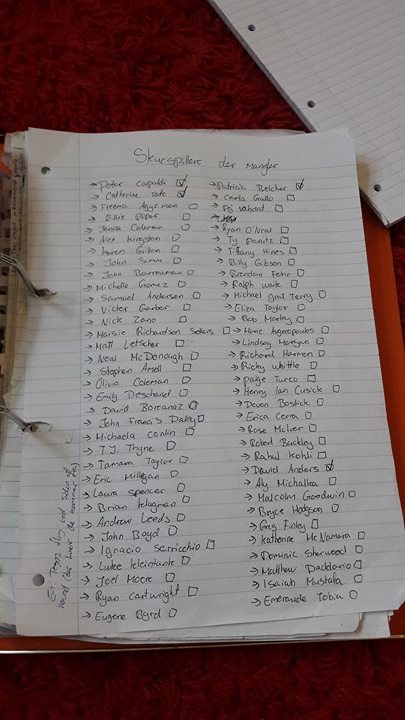 Skuespillere der mangler
→ Peter Capaldi ☑
→ Catherine Tate ☑
→ Freema Agyeman □
→ Billie Piper □
→ Jenna Coleman □
→ Alex Kingston □
→ Karen Gillan □
→ John Simm □
→ John Barrowman □
→ Michelle Gomez □
→ Samuel Anderson □
→ Victor Garber □
→ Nick Zano □
→ Maisie Richardson Sellers □
→ Matt Letscher □
→ Neal McDonough □
→ Stephen Amell □
→ Olivia Coleman □
→ Emily Deschanel □
→ David Boreanaz □
→ John Francis Daley □
→ Michaela Conlin □
→ T.J. Thyne □
→ Tamara Taylor □
→ Eric Millegan □
→ Laura Spencer □
→ Brian Klugman □
→ Andrew Leeds □
→ John Boyd □
→ Ignacio Serricchio □
→ Luke Kleintank □
→ Joel Moore □
→ Ryan Cartwright □
→ Eugene Byrd □
→ Patricia Belcher ☑
→ Carla Gallo □
→ Pej Vahdat □
→ Ryan O'Neal □
→ Ty Panitz □
→ Tiffany Hines □
→ Billy Gibson □
→ Brendan Fehr □
→ Ralph Waite □
→ Michael Grant Terry □
→ Eliza Taylor □
→ Bob Morley □
→ Marie Avgeropoulos □
→ Lindsey Morgan □
→ Richard Harmon □
→ Ricky Whittle □
→ Paige Turco □
→ Henry Ian Cusick □
→ Devon Bostick □
→ Erica Cerra □
→ Rose McIver □
→ Robert Buckley □
→ Rahul Kohli □
→ David Anders ☑
→ Aly Michalka □
→ Malcolm Goodwin □
→ Bryce Hodgson □
→ Greg Finley □
→ Katherine McNamara □
→ Dominic Sherwood □
→ Matthew Daddario □
→ Isaiah Mustafa □
→ Emeraude Tobia □
tegn flag ved siden af
navnet (der hvor de kommer fra)